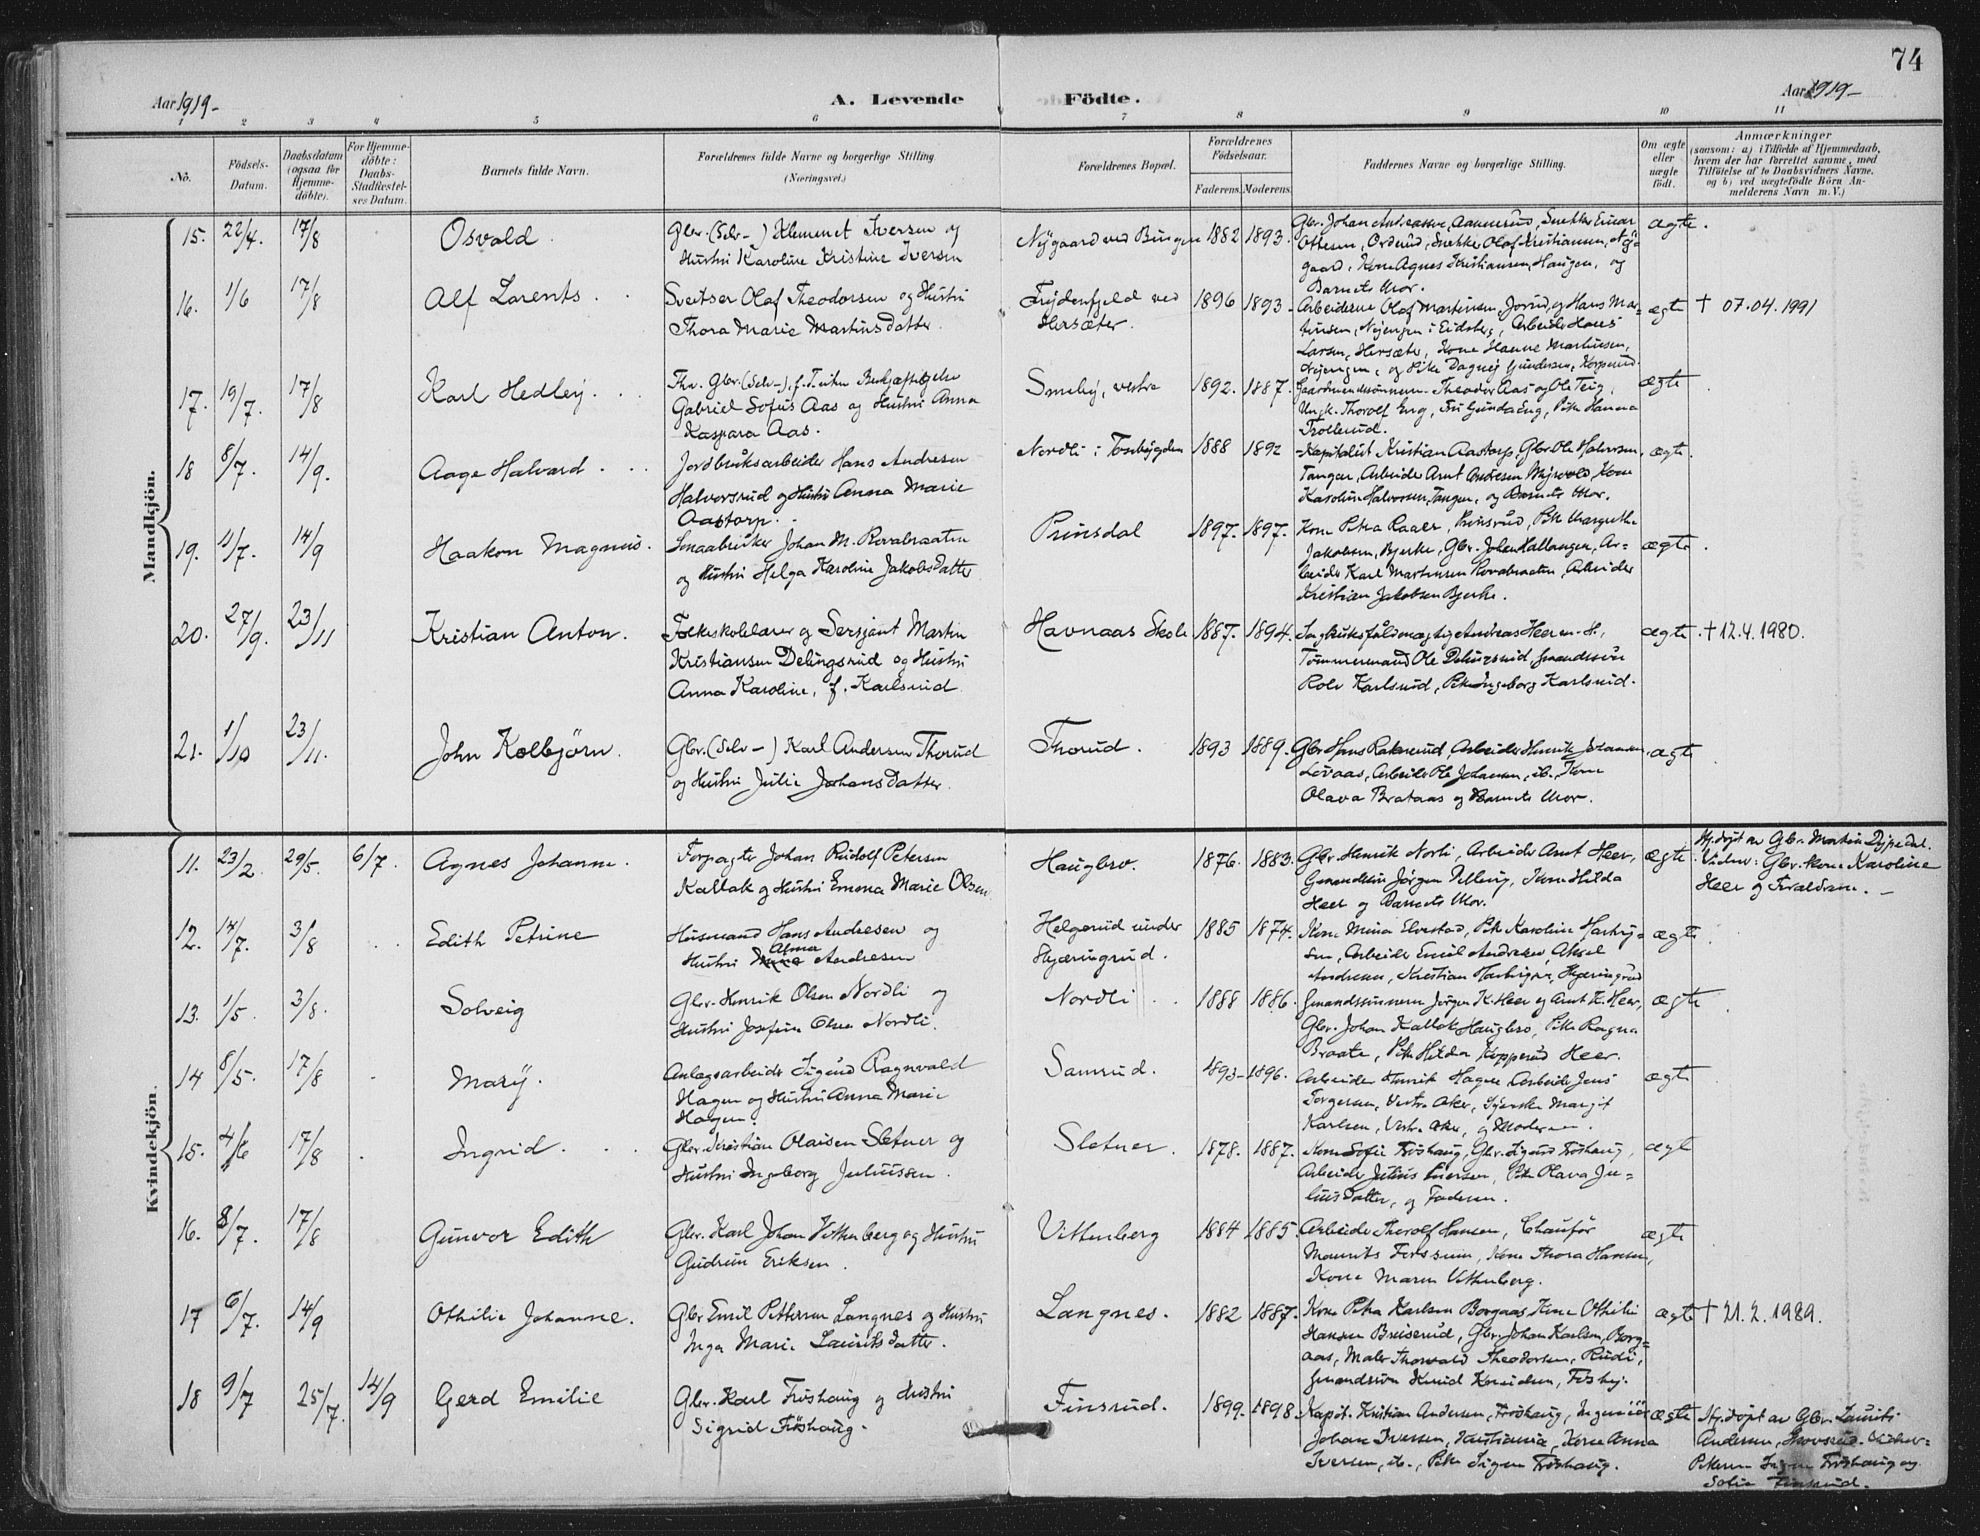 74
Aar 1919-
A. Levende Födte.
Aar 1919-
1 2 3 4 5 6 7 8 9 10 11
No.
Födsels-Datum.
Daabsdatum (ogsaa for Hjemme-döbte).
For Hjemme-döbte: Daabs-Stadfæstel-ses Datum.
Barnets fulde Navn.
Forældrenes fulde Navne og borgerlige Stilling
(Næringsvei.)
Forældrenes Bopæl.
Forældrenes Födselsaar.
Faderens. Moderens.
Faddernes Navne og borgerlige Stilling.
Om ægte eller uægte födt.
Anmærkninger
(saasom: a) i Tilfælde af Hjemmedaab,
hvem der har forrettet samme, med
Tilföielse af to Daabsvidners Navne.
og b) ved uægtefödte Börn An-
melderens Navn m. V.)
Mandkjön.
15. 22/4. 17/8 Osvald. Gbr. (Selv-) Klemmet Iversen og
Hustru Karoline Kristine Iversen
Nygaard ved Bingen 1882 1893.
Gbr. Johan Andreassen, Aamerud, Snekker Einar
Ottesen, Orderud, Snekker Olaf Kristiansen, Ny-
gaard, Kone Agnes Kristiansen, Haugen, og
Barnets Mor.
ægte.
16. 1/6 17/8 Alf Lorents. Sveitser Olaf Theodorsen og Hustru
Thora Marie Martinsdatter.
Frydenfjeld ved
Hersæter.
1896 1893.
Arbeiderne Olaf Martinsen, Jorud, og Hans Mar-
tinsen, Nyengen i Eidsberg, Arbeider Hans
Larsen, Hersæter, Kone Hanne Martinsen,
Nyengen, og Pike Dagny Gundersen, Korperud.
ægte † 07.04.1991
17. 19/7. 17/8 Karl Hedley. Fhv. Gbr. (Selv-), f.T. uten Beskjæftigelse
Gabriel Sofus Aas og Hustru Anna
Kaspara Aas.
Smeby, vestre 1892. 1887.
Gaardmandssönnerne Theodor Aas og Ole Teig,
Ungk. Thorolf Eng, Fru Gunda Eng, Pike Hanna
Trollerud.
ægte
18 8/7. 14/9. Aage Halvard. Jordbruksarbeider Hans Andresen
Halvorsrud og Hustru Anna Marie
Aastorp.
Nordli i Tosebygden 1888 1892
Kapitalist Kristian Aastorp, Gbr. Ole Halvorsen,
Tangen, Arbeider Arnt Andresen Myrvold, Kone
Karoline Halvorsen, Tangen, og Barnets Mor.
ægte.
19. 1/7. 14/9 Haakon Magnus. Smaabruker Johan M. Rovabraaten
og Hustru Helga Karoline Jakobsdatter
Prinsdal 1897. 1897.
Kone Petra Raaer, Prinsrud, Pike Margrethe
Jakobsen, Bjerke, Gbr. Johan Hallangen, Ar-
beider Karl Martinsen Rovabraaten, Arbeider
Kristian Jakobsen Bjerke.
ægte.
20. 27/9. 23/11 Kristian Anton. Folkeskolelærer og Sersjant Martin
Kristiansen Delingsrud og Hustru
Anna Karoline, f. Karlsrud
Havnaas Skole 1887. 1894.
Sagbruksfuldmægtig Andreas Heer
Tömmermand Ole Delingsrud, Gmandssön
Rolv Karlsrud, Pike Ingeborg Karlsrud.
ægte. † 12.4.1980.
21. 1/10 23/11. John Kolbjörn. Gbr. (Selv-) Karl Andersen Thorud
og Hustru Julie Johansdatter.
Thorud. 1893 1889.
Gbr. Hans Rakerud, Arbeider Henrik Johansen
Lövaas, Arbeider Ole Johansen, ib., Kone
Olava Brataas og Barnets Mor.
ægte
Kvindekjön.
11. 23/2 29/5. 6/7. Agnes Johanne. Forpagter Johan Rudolf Petersen
Kallak og Hustru Emma Marie Olsen
Haugbro. 1876. 1883.
Gbr. Henrik Norli, Arbeider Arnt Heer,
Gmandssön Jörgen Kilberg, Kone Hilda
Heer og Barnets Mor.
ægte
Hj.döpt av Gbr. Martin Dypedal.
Vidner: Gbr. kone Karoline
Heer og Foræld­rene.
12. 14/7. 3/8 Edith Petrine Husmand Hans Andresen og
Hustru Alma Andresen
Helgerud under
Hjæringrud.
1885 1874.
Kone Mina Elvestad, Pike Karoline Hartvig-
sen, Arbeider Emil Andresen, Aksel
Andresen, Kristian Hartvigsen, Hjæringrud
ægte
13. 1/5. 3/8. Solveig Gbr. Henrik Olsen Nordli og
Hustru Josefine Olsen Nordli.
Nordli 1888 1886.
Gmandssönnerne Jörgen K. Heer og Arnt K. Heer,
Gbr. Johan Kallak Haugbro, Pike Ragna
Braate, Pike Hilda Kopperud Heer.
ægte
14 8/5. 17/8 Mary. Anlægsarbeider Sigurd Ragnvald
Hagen og Hustru Anna Marie
Hagen.
Samrud. 1893- 1896.
Arbeider Henrik Hagen, Arbeider Jens
Torgersen, Vestre Aker, Syerske Margit
Karlsen, Vestre Aker, og Moderen.
ægte
15. 4/6 17/8 Ingrid. Gbr. Kristian Olaisen Sletner og
Hustru Ingeborg Juliussen.
Sletner. 1878. 1887.
Kone Sofie Fröshaug, Gbr. Sigurd Fröshaug,
Arbeider Julius Iversen, Pike Olava Ju-
liusdatter, og Faderen.
ægte
16. 8/7. 17/8 Gunvor Edith Gbr. Karl Johan Vittenberg og Hustru
Gudrun Eriksen.
Vittenberg 1884 1885.
Arbeider Thorolf Hansen, Chauför
Maurits Fossum, Kone Thora Hansen,
Kone Maren Vittenberg.
ægte
17 6/7. 14/9 Othilie Johanne. Gbr. Emil Pettersen Langnes og Hustru
Inga Marie Lauritsdatter.
Langnes. 1882 1887.
Kone Petra Karlsen Borgaas, Kone Othilie
Hansen Breiserud, Gbr. Johan Karlsen, Borg-
aas, Maler Thorvald Theodorsen, Rudi,
Gmandssön Knud Knudsen, Fosby.
ægte † 21.2.1989.
18 9/7 25/7. 14/9 Gerd Emilie Gbr. Karl Fröshaug og Hustru
Sigrid Fröshaug.
Finsrud. 1899. 1898.
Kapit. Kristian Andersen, Fröshaug, Ingeniör
Johan Iversen, Kristiania, Kone Anna
Iversen, ib., Pike Signe Fröshaug.
ægte
Hj.döpt av Gbr. Laurits
Andersen, Skovsrud. Vidner:
Pikerne Signe Fröshaug og
Sofie Finsrud.